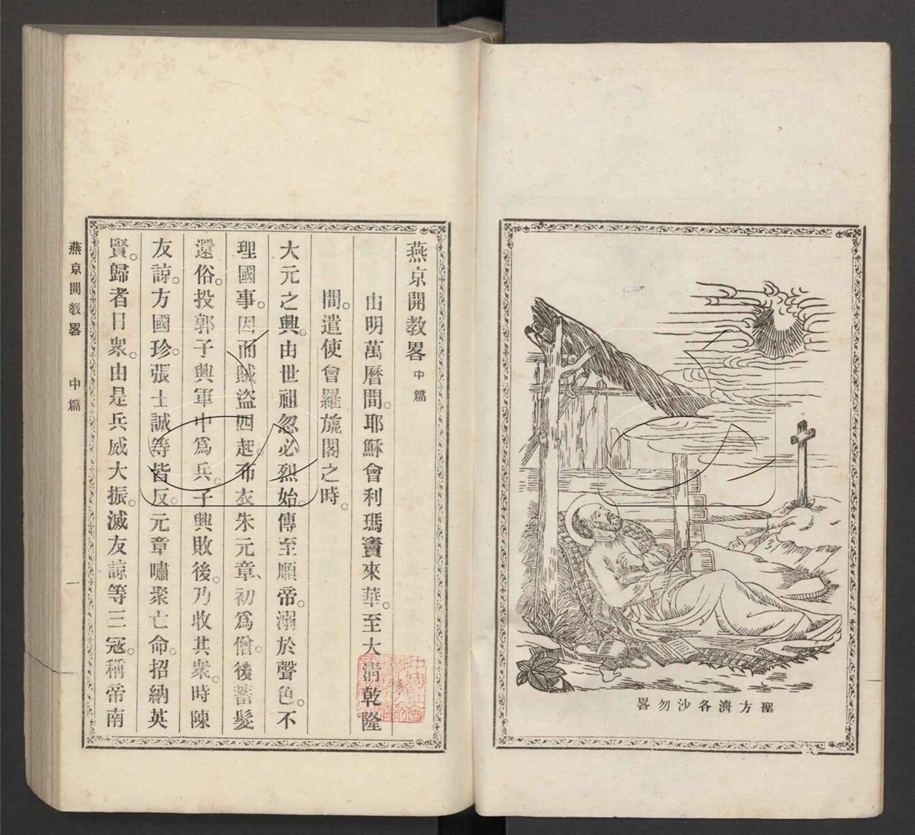 聖方濟各沙勿畧
燕京開教畧 中篇
由明萬曆間。耶穌會利瑪竇來華。至大清乾隆
間。遣使會羅旎閣之時。
大元之興。由世祖忽必烈始。傳至順帝。溺於聲色。不
理國事。因而賊盜四起。布衣朱元章、初爲僧。後蓄髮
還俗。投郭子興軍中爲兵。子興敗後。乃收其衆。時陳
友諒。方國珍。張士誠等皆反。元章嘯聚亡命。招納英
賢。歸者日衆。由是兵威大振。滅友諒等三冦。稱帝南
燕京開教畧 中篇 一